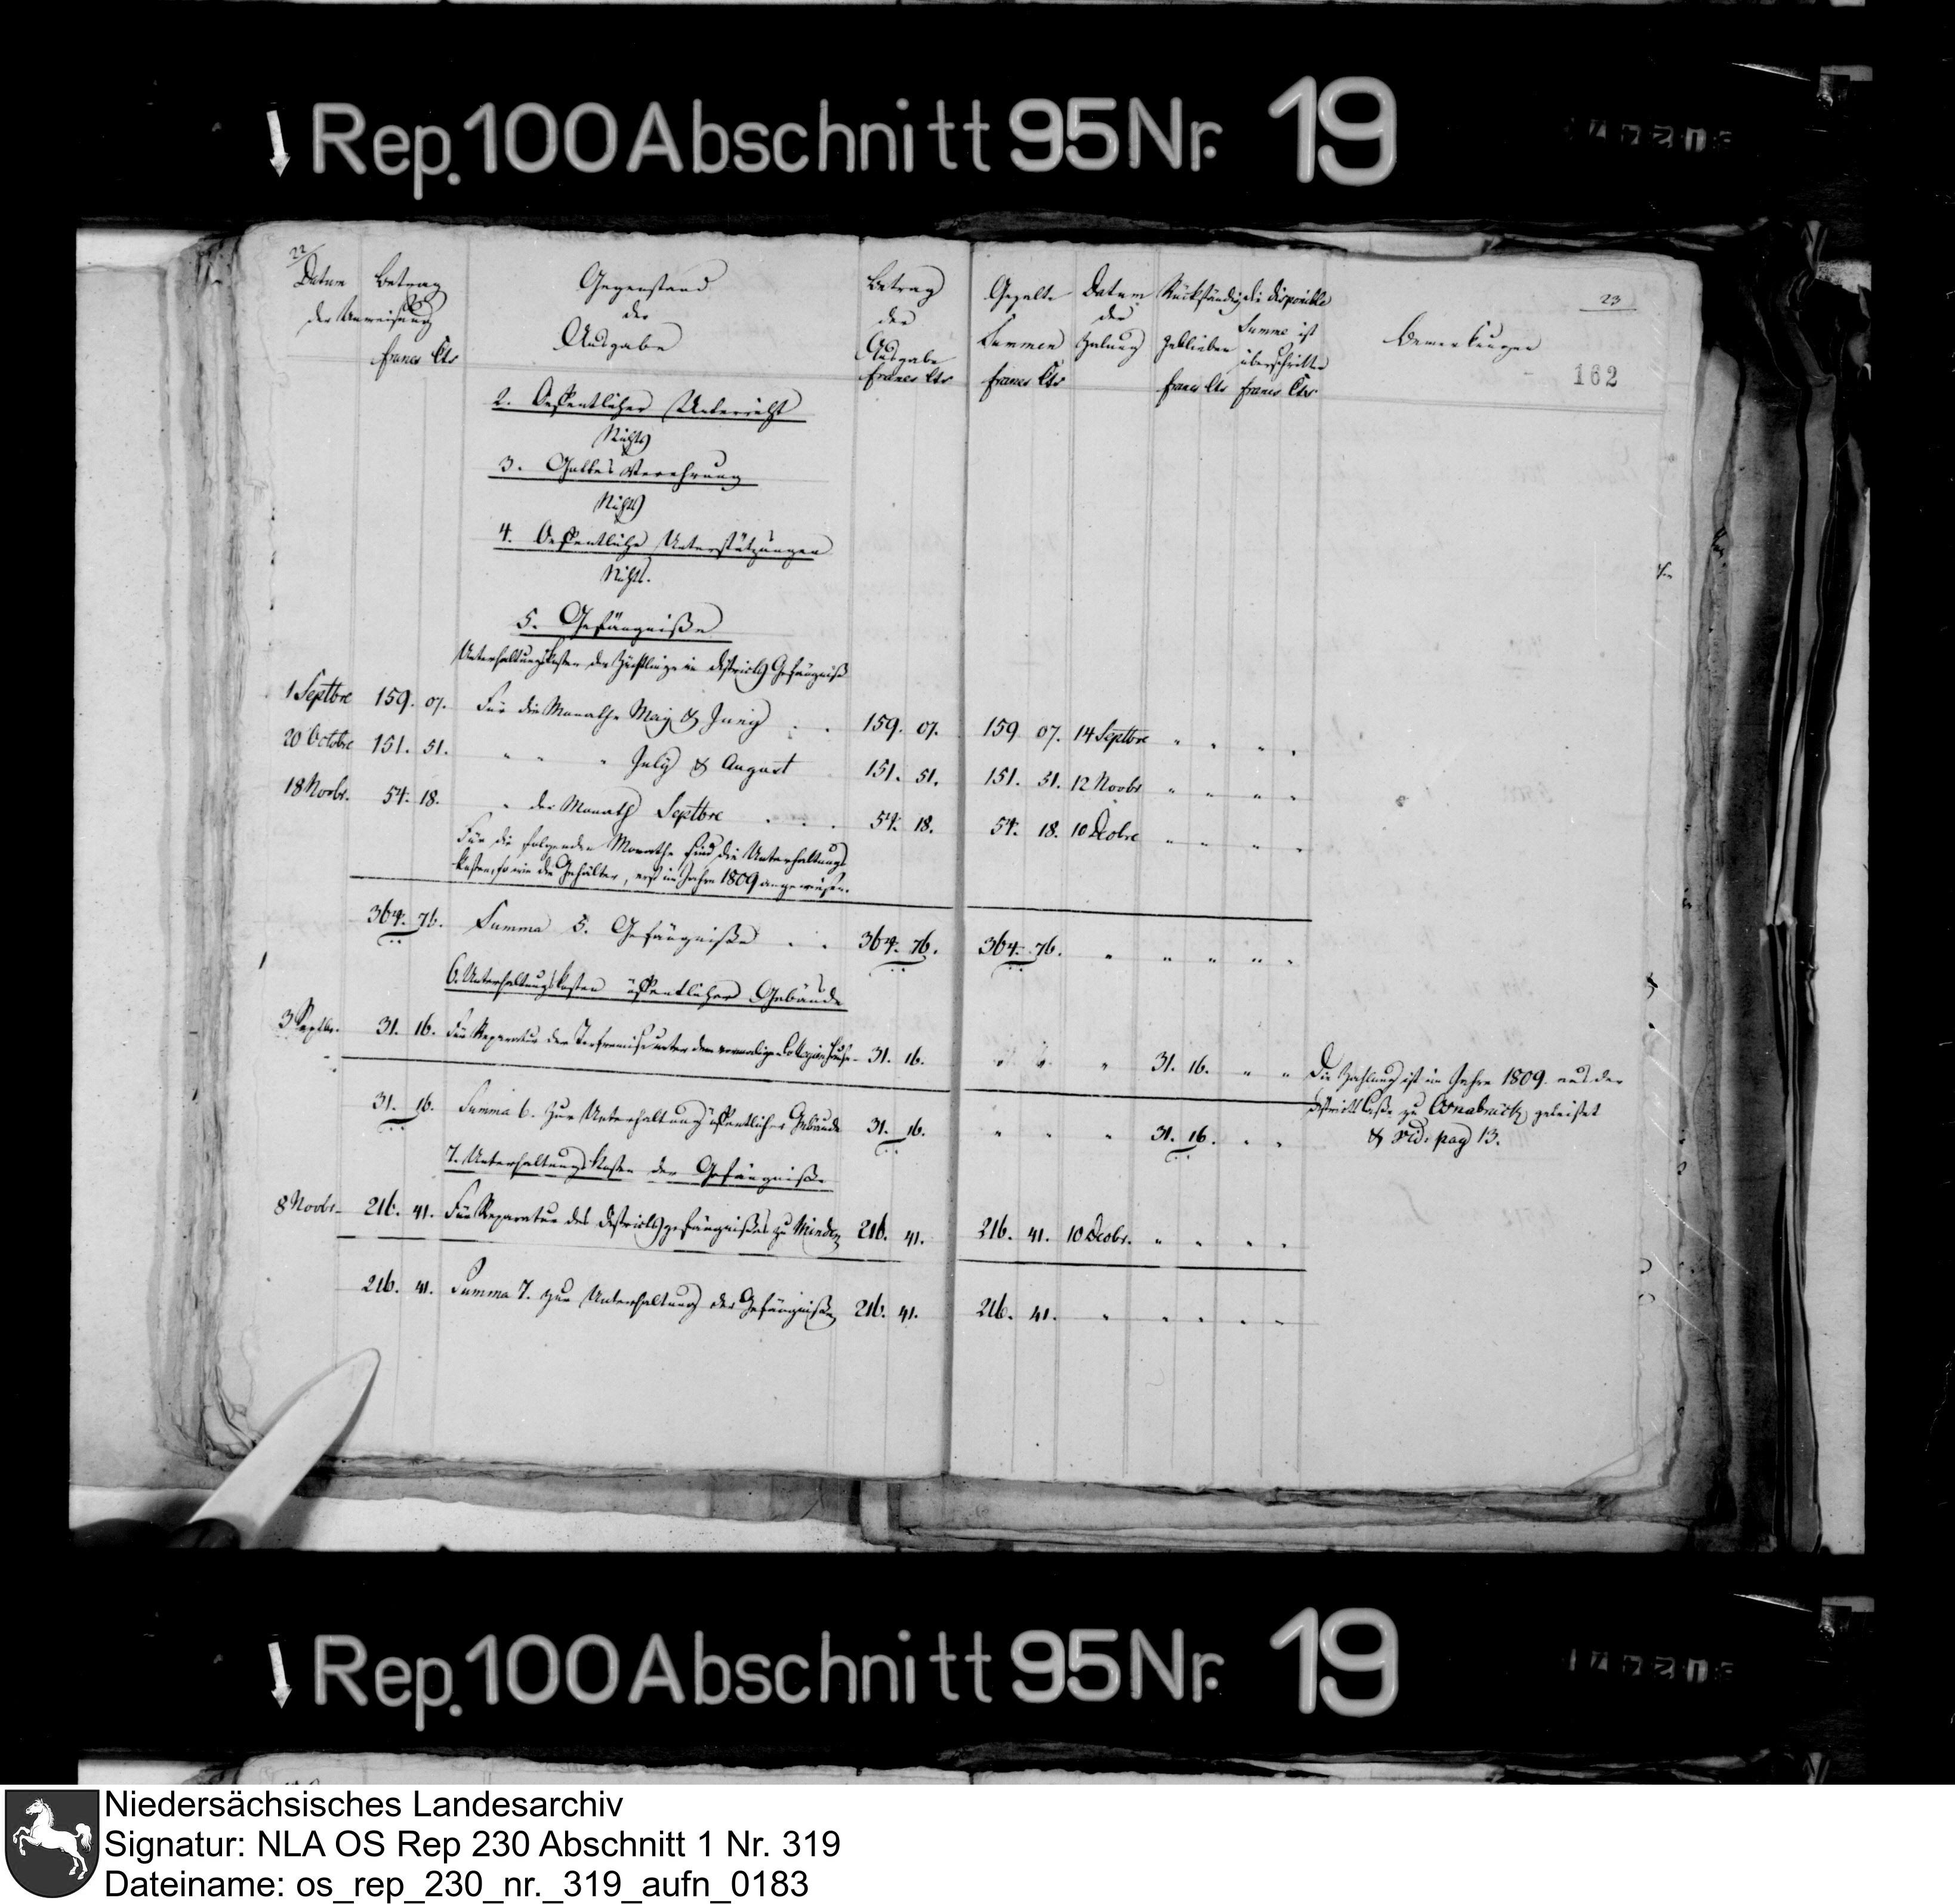 Rep. 100 Abschnitt 95 Nr. 19
22
Datum Betrag
der Anweisung
francs Cts
Gegenstand
der
Ausgabe
Betrag
der
Ausgabe
francs Cts
Gezalte Datum Rückständig die disponible
Summen der Zalung geblieben Summe ist
überschritten
francs Cts francs Cts francs Cts
Bemerkungen
23
162
2. Oeffentlicher Unterricht
Nichts
3. Gottes Verehrung
Nichts
4. Oeffentliche Unterstützungen
Nichts.
5. Gefängniße
Unterhaltungskosten der Häftlinge in districts Gefängniß
1 Septbre 159. 07. Für die Monathe May & Juny . . 159. 07. 159 07. 14 Septbre " " " "
20 Octobre 151. 51. " " " July & August 151. 51. 151. 51. 12 Novbr " " " "
18 Novbr. 54. 18. " den Monath Septbre . . . 54. 18. 54. 18. 10 Decbre " " " "
Für die folgenden Monathe sind die Unterhaltungs
kosten, so wie die Gehälter, erst im Jahre 1809 angewiesen.
364. 76. Summa 5. Gefängniße . . 364. 76. 364. 76. " " " " "
6. Unterhaltungskosten öffentlicher Gebäude
3 Septbr. 31. 16. Für Reparatur der unter dem vormaligen 31. 16. " " " 31. 16. " " Die Zahlung ist im Jahre 1809. aus der
district Caße zu Osnabrück geleistet
& vid: pag 13.
31. 16. Summa 6. Zur Unterhaltung öffentlicher Gebäude 31. 16. " " " 31. 16. " "
7. Unterhaltungskosten der Gefängniße
8 Novbr. 216. 41. Für Reparatur des districtsgefängnißes zu Minden 216. 41. 216. 41. 10 Decbr. " " " "
216. 41. Summa 7. zur Unterhaltung der Gefängniße 216. 41. 216. 41. " " " " "
Rep. 100 Abschnitt 95 Nr. 19
Niedersächsisches Landesarchiv
Signatur: NLA OS Rep 230 Abschnitt 1 Nr. 319
Dateiname: os_rep_230_nr._319_aufn_0183